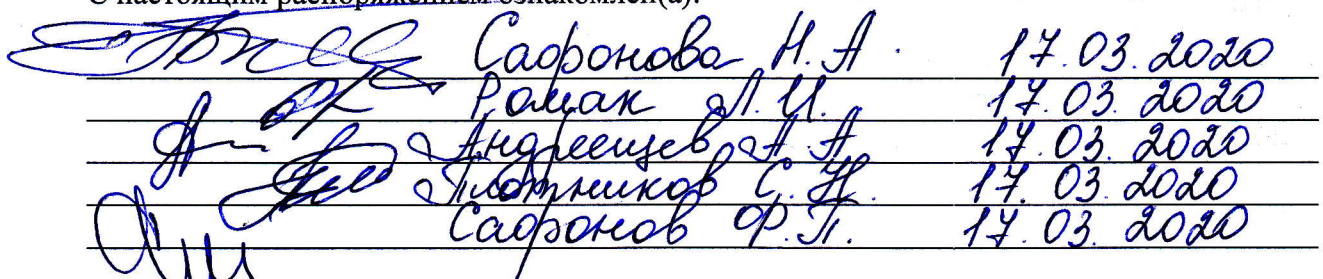 С настоящим распоряжением ознакомлен(а):
Сафонова Н.А. 17.03.2020
Ромак Л.И. 17.03.2020
Андреещев А.А 17.03.2020
Плотников С.Н. 17.03.2020
Сафонов Ф.П. 17.03.2020